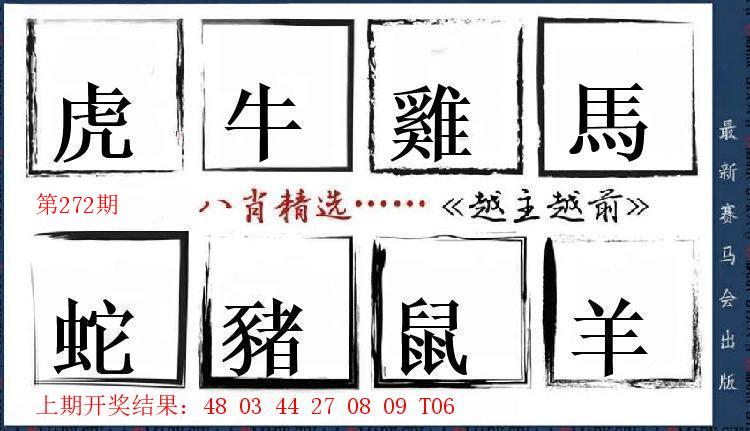 虎 牛 雞 馬
第272期 八肖精选…… 《越主越前》
蛇 豬 鼠 羊
上期开奖结果：48 03 44 27 08 09 T06
最新赛马会出版